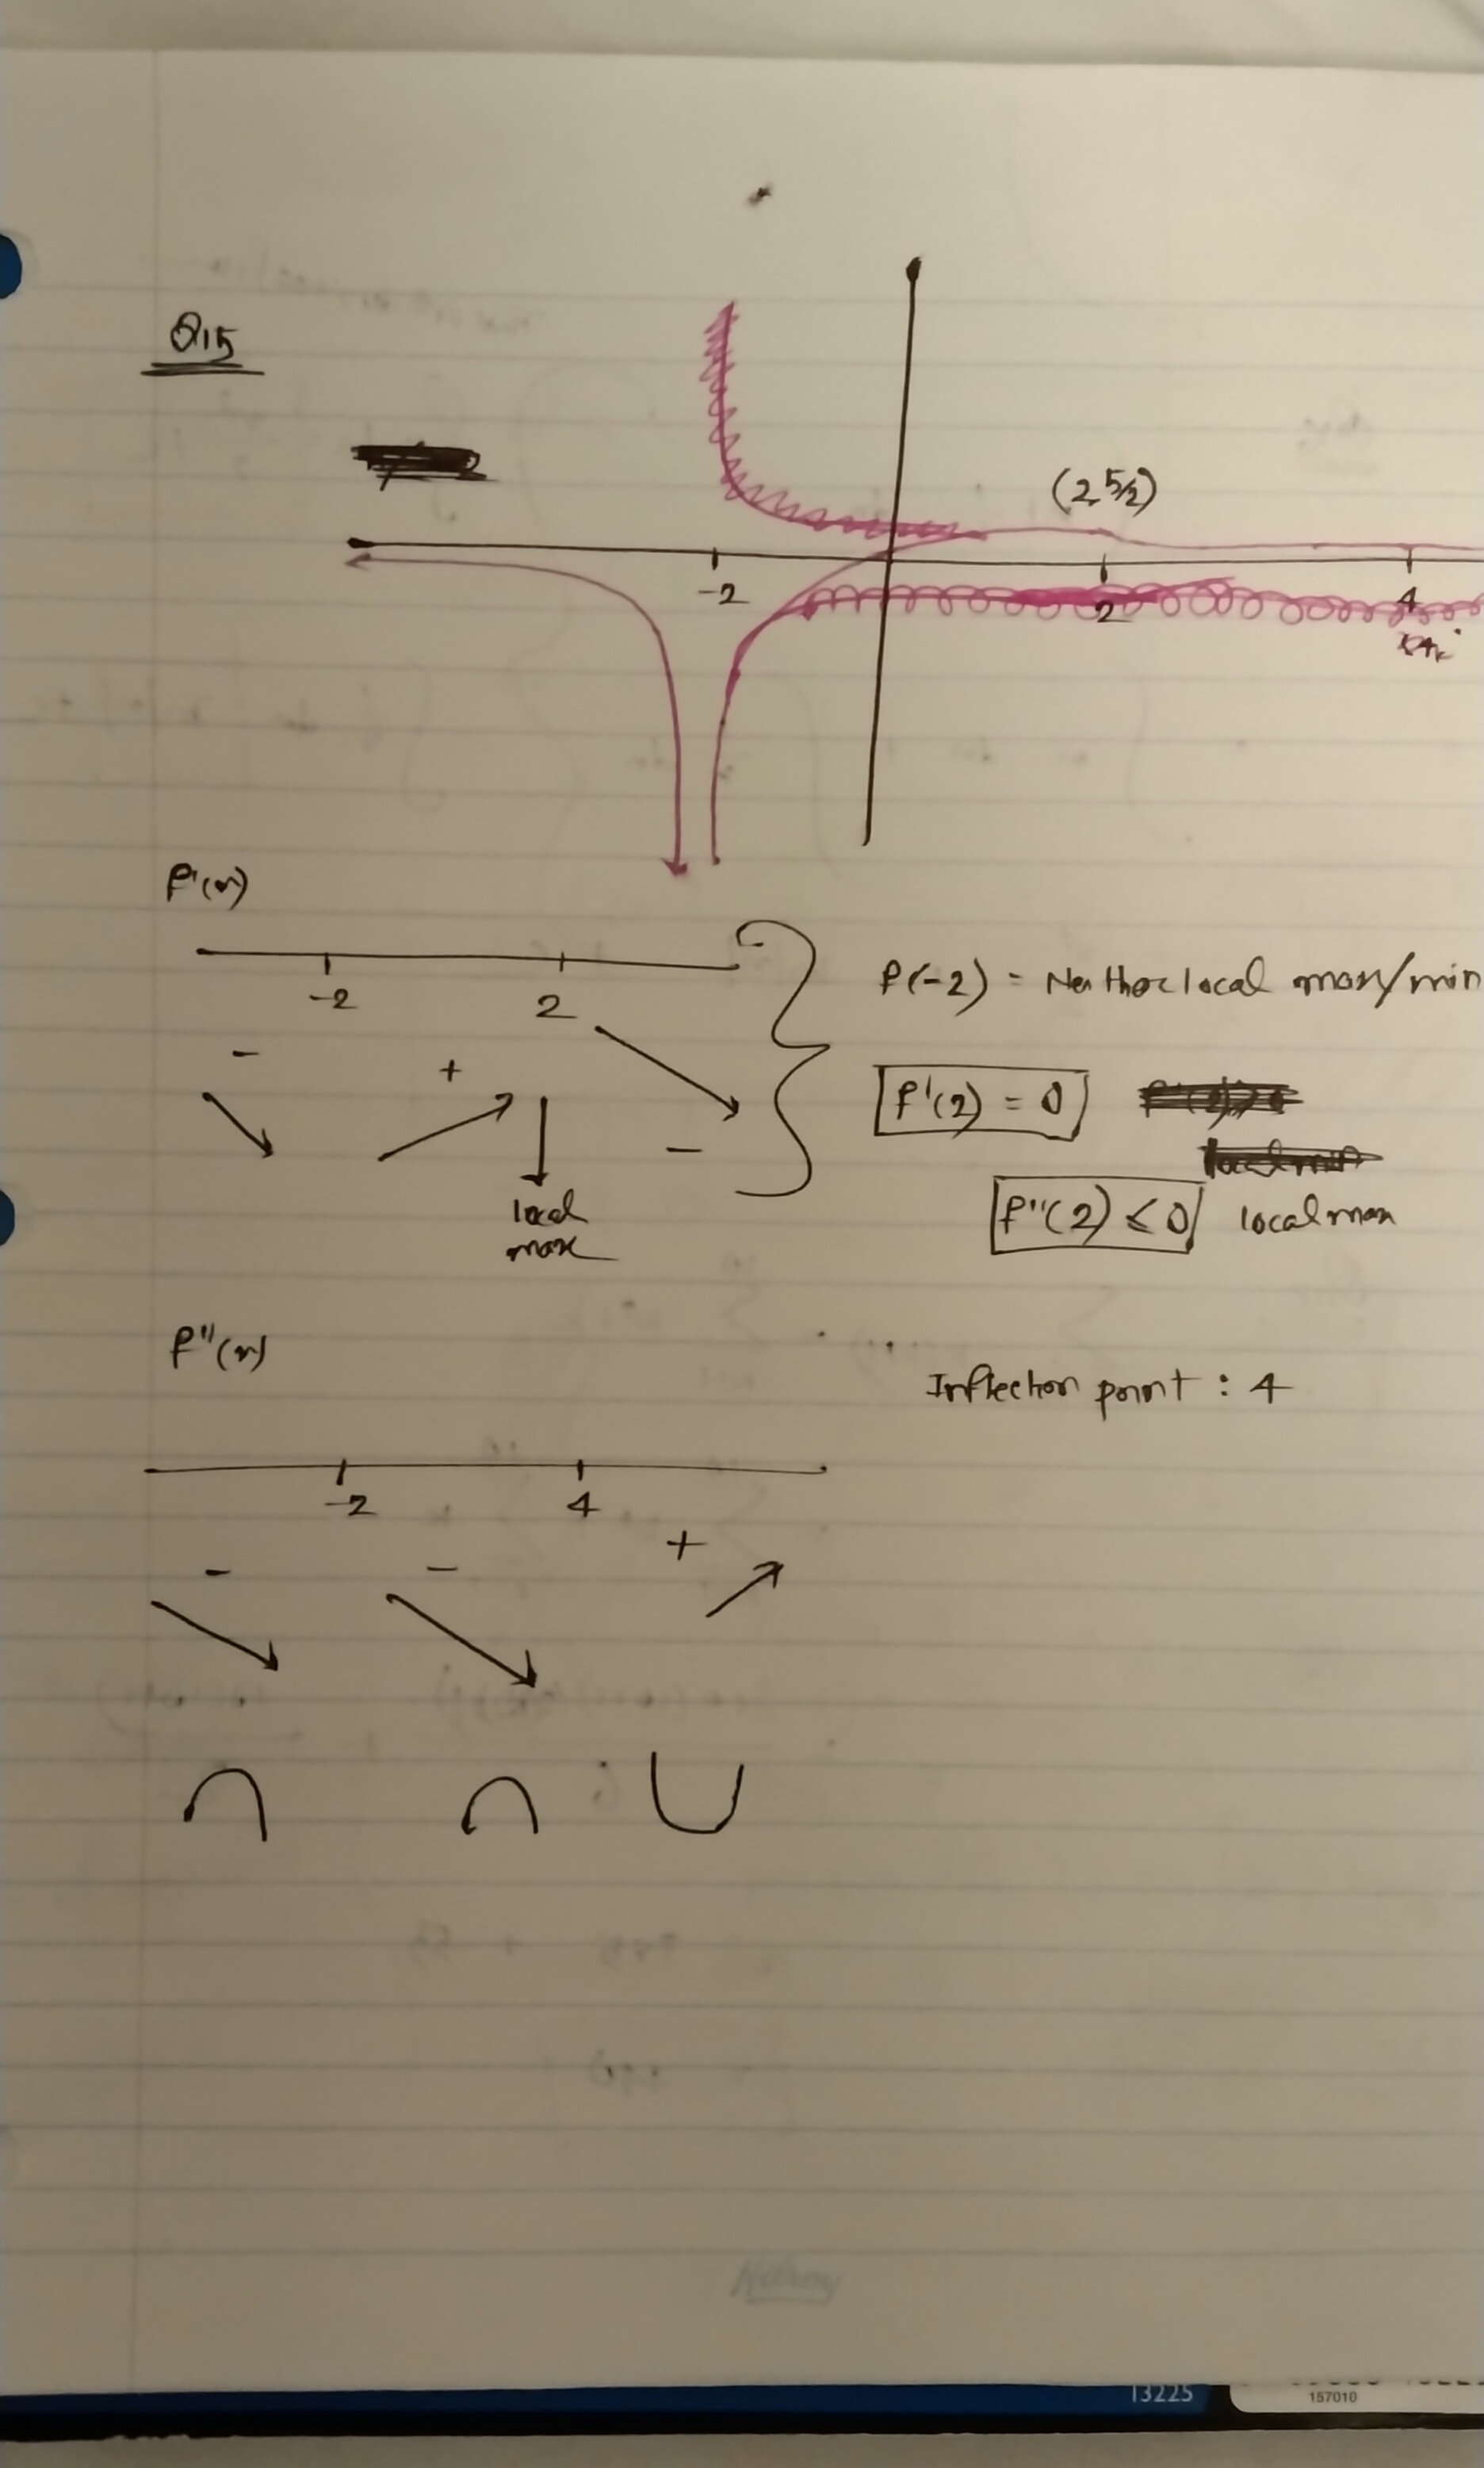 Q15
(2 5/2)
-2
2
4
f'(x)
-2 2
- + -
local
max
f(-2) = Neither local max/min
f'(2) = 0
f''(2) < 0 local max
f''(x)
Inflection point : 4
-2 4
- - +
13225
157010